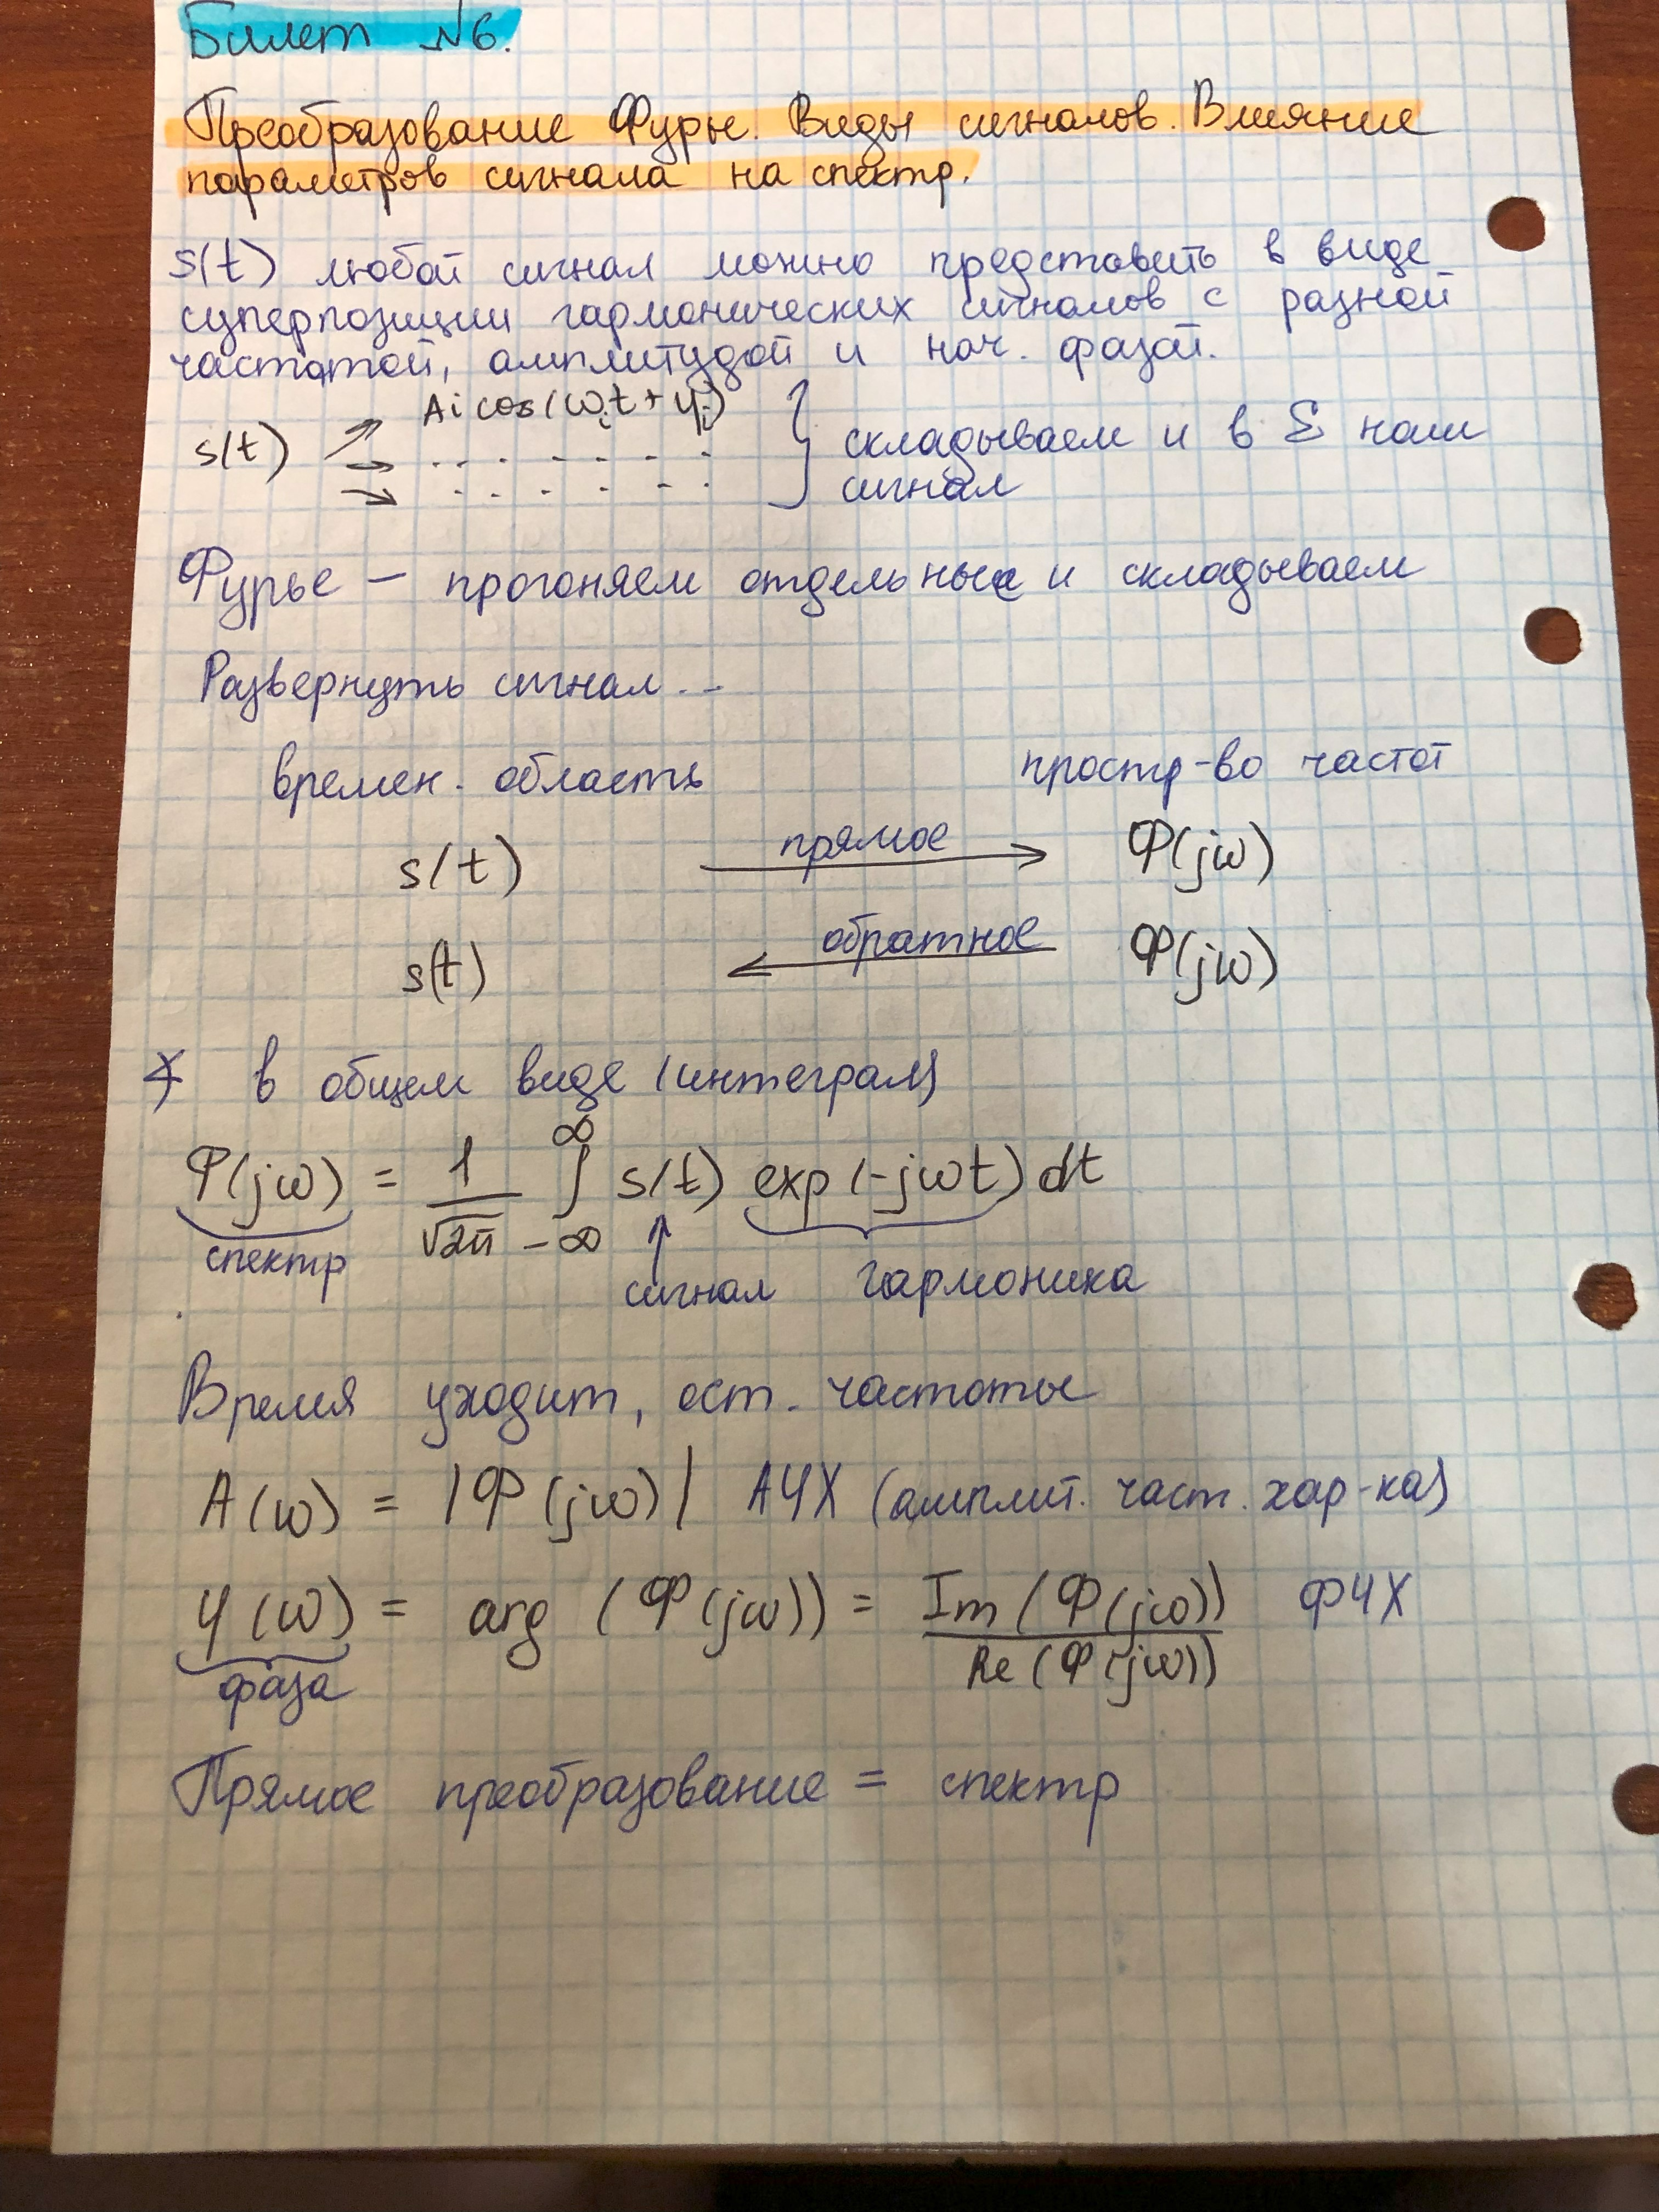 Билет №6.
Преобразование Фурье. Виды сигналов. Влияние
параметров сигнала на спектр.
s(t) любой сигнал можно представить в виде
суперпозиции гармонических сигналов с разной
частотой, амплитудой и нач. фазой.
Ai cos(ωit + φi)
s(t) → складываем и в Σ наш
сигнал
Фурье – прогоняем отдельные и складываем
Развернуть сигнал...
времен. область простр-во частот
s(t) прямое → Φ(jω)
s(t) ← обратное Φ(jω)
* в общем виде (интеграл)
Φ(jω) = 1/√2π ∫_{-∞}^{∞} s(t) exp(-jωt) dt
спектр сигнал гармоника
Время уходит, ост. частоты
A(ω) = |Φ(jω)| АЧХ (амплит. част. хар-ка)
φ(ω) = arg (Φ(jω)) = Im(Φ(jω)) / Re(Φ(jω)) ФЧХ
фаза
Прямое преобразование = спектр